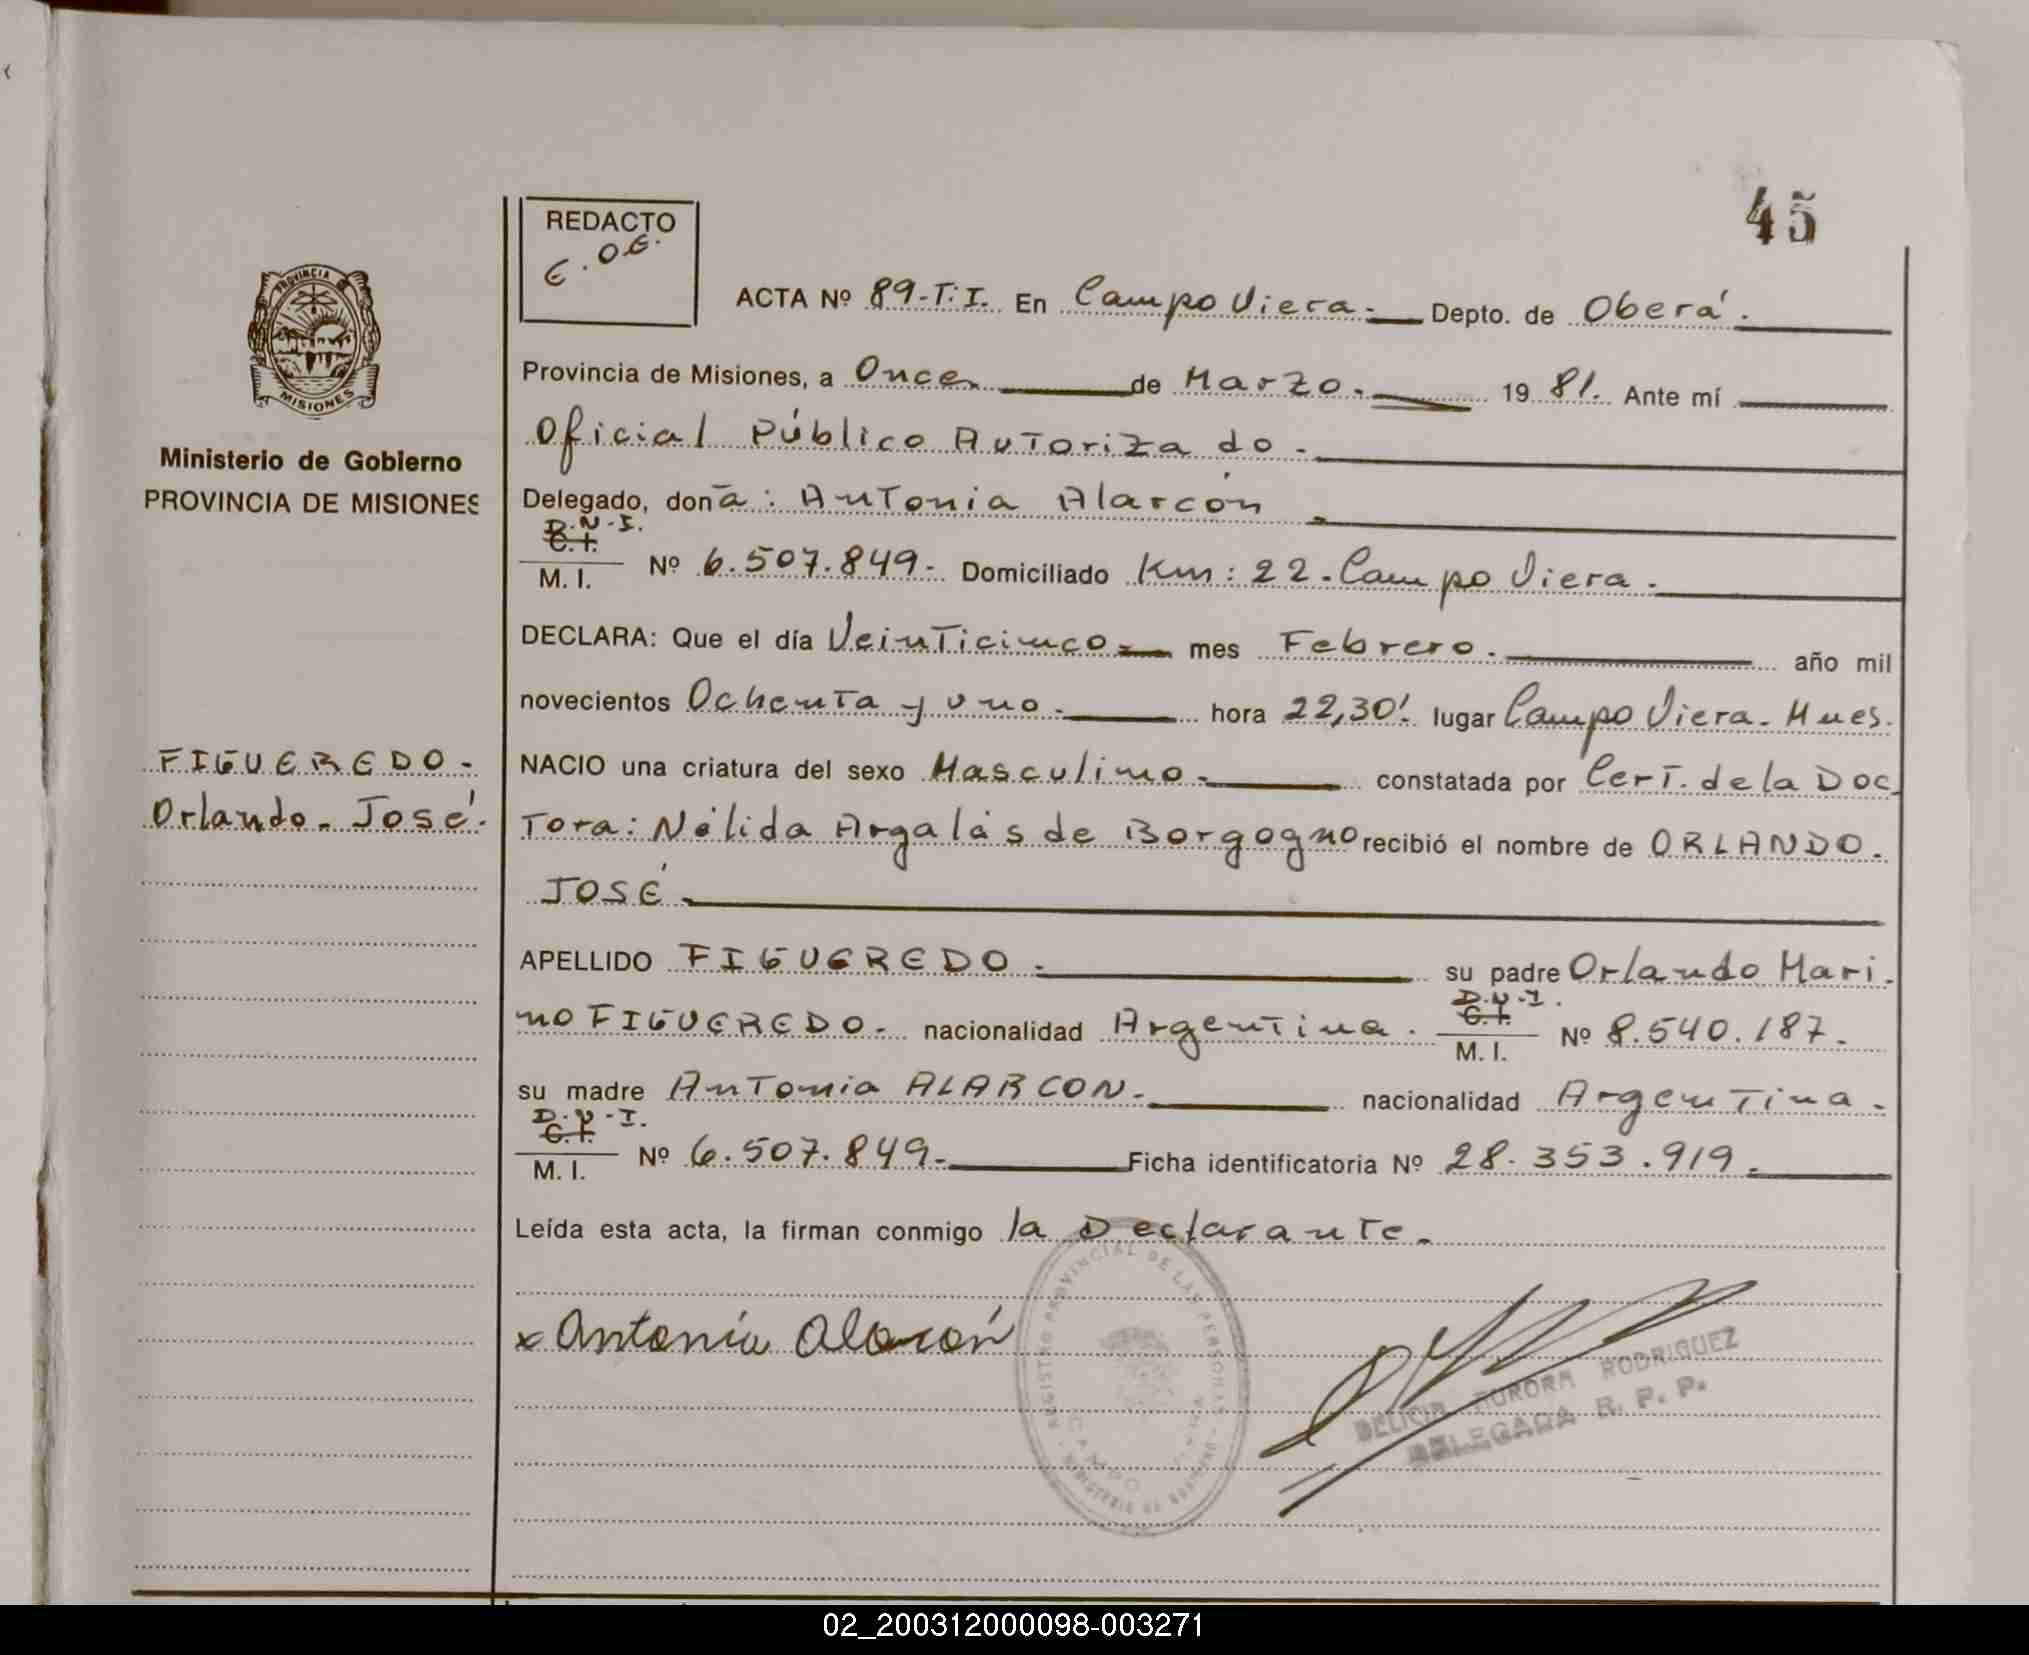 45
REDACTO
E.O.E.
PROVINCIA
MISIONES
ACTA Nº 89-T.I. En Campo Viera.- Depto. de Oberá.
Provincia de Misiones, a Once de Marzo. 1981. Ante mí
Oficial Público Autorizado.
Ministerio de Gobierno
PROVINCIA DE MISIONES
Delegado, donã: Antonia Alarcón
D.N.I.
C.I.
M.I. Nº 6.507.849.- Domiciliado Km: 22.- Campo Viera.
DECLARA: Que el día Veinticinco mes Febrero. año mil
novecientos Ochenta y uno. hora 22,30'. lugar Campo Viera. Mnes.
FIGUEREDO.-
Orlando. José.
NACIO una criatura del sexo Masculino. constatada por Cert. de la Doc
tora: Nélida Argalás de Borgogno recibió el nombre de ORLANDO.
JOSÉ.
APELLIDO FIGUEREDO. su padre Orlando Mari.
no FIGUEREDO.- nacionalidad Argentina. D.N.I. C.I. M.I. Nº 8.540.187.
su madre Antonia ALARCON.- nacionalidad Argentina.-
D.N.I.
C.I.
M.I. Nº 6.507.849.- Ficha identificatoria Nº 28.353.919.
Leída esta acta, la firman conmigo la Declarante.-
x Antonia Alarcón
REGISTRO PROVINCIAL DE LAS PERSONAS
CAMPO
DELICIA AURORA RODRIGUEZ
DELEGADA R. P. P.
02_200312000098-003271